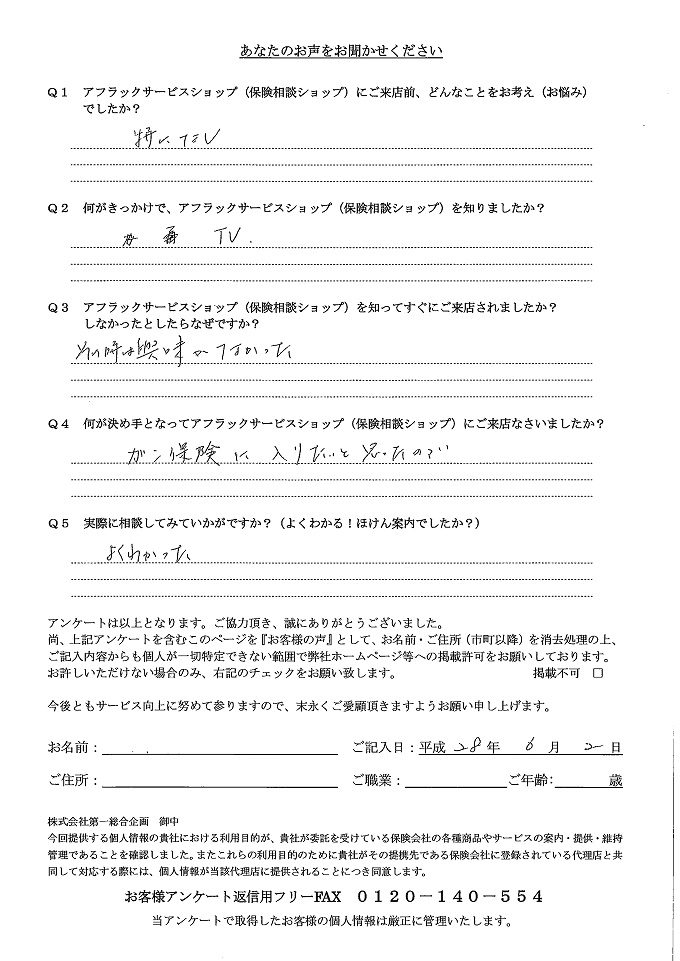 あなたのお声をお聞かせください
Q1 アフラックサービスショップ（保険相談ショップ）にご来店前、どんなことをお考え（お悩み）
でしたか？
特になし
Q2 何がきっかけで、アフラックサービスショップ（保険相談ショップ）を知りましたか？
TV.
Q3 アフラックサービスショップ（保険相談ショップ）を知ってすぐにご来店されましたか？
しなかったとしたらなぜですか？
その時は興味がなかった
Q4 何が決め手となってアフラックサービスショップ（保険相談ショップ）にご来店なさいましたか？
ガン保険に入りたいと思ったので
Q5 実際に相談してみていかがですか？（よくわかる！ほけん案内でしたか？）
よくわかった
アンケートは以上となります。ご協力頂き、誠にありがとうございました。
尚、上記アンケートを含むこのページを『お客様の声』として、お名前・ご住所（市町以降）を消去処理の上、
ご記入内容からも個人が一切特定できない範囲で弊社ホームページ等への掲載許可をお願いしております。
お許しいただけない場合のみ、右記のチェックをお願い致します。 掲載不可 □
今後ともサービス向上に努めて参りますので、末永くご愛顧頂きますようお願い申し上げます。
お名前： ご記入日：平成 28 年 6 月 2 日
ご住所： ご職業： ご年齢： 歳
株式会社第一総合企画 御中
今回提供する個人情報の貴社における利用目的が、貴社が委託を受けている保険会社の各種商品やサービスの案内・提供・維持
管理であることを確認しました。またこれらの利用目的のために貴社がその提携先である保険会社に登録されている代理店と共
同して対応する際には、個人情報が当該代理店に提供されることにつき同意します。
お客様アンケート返信用フリーFAX 0120－140－554
当アンケートで取得したお客様の個人情報は厳正に管理いたします。